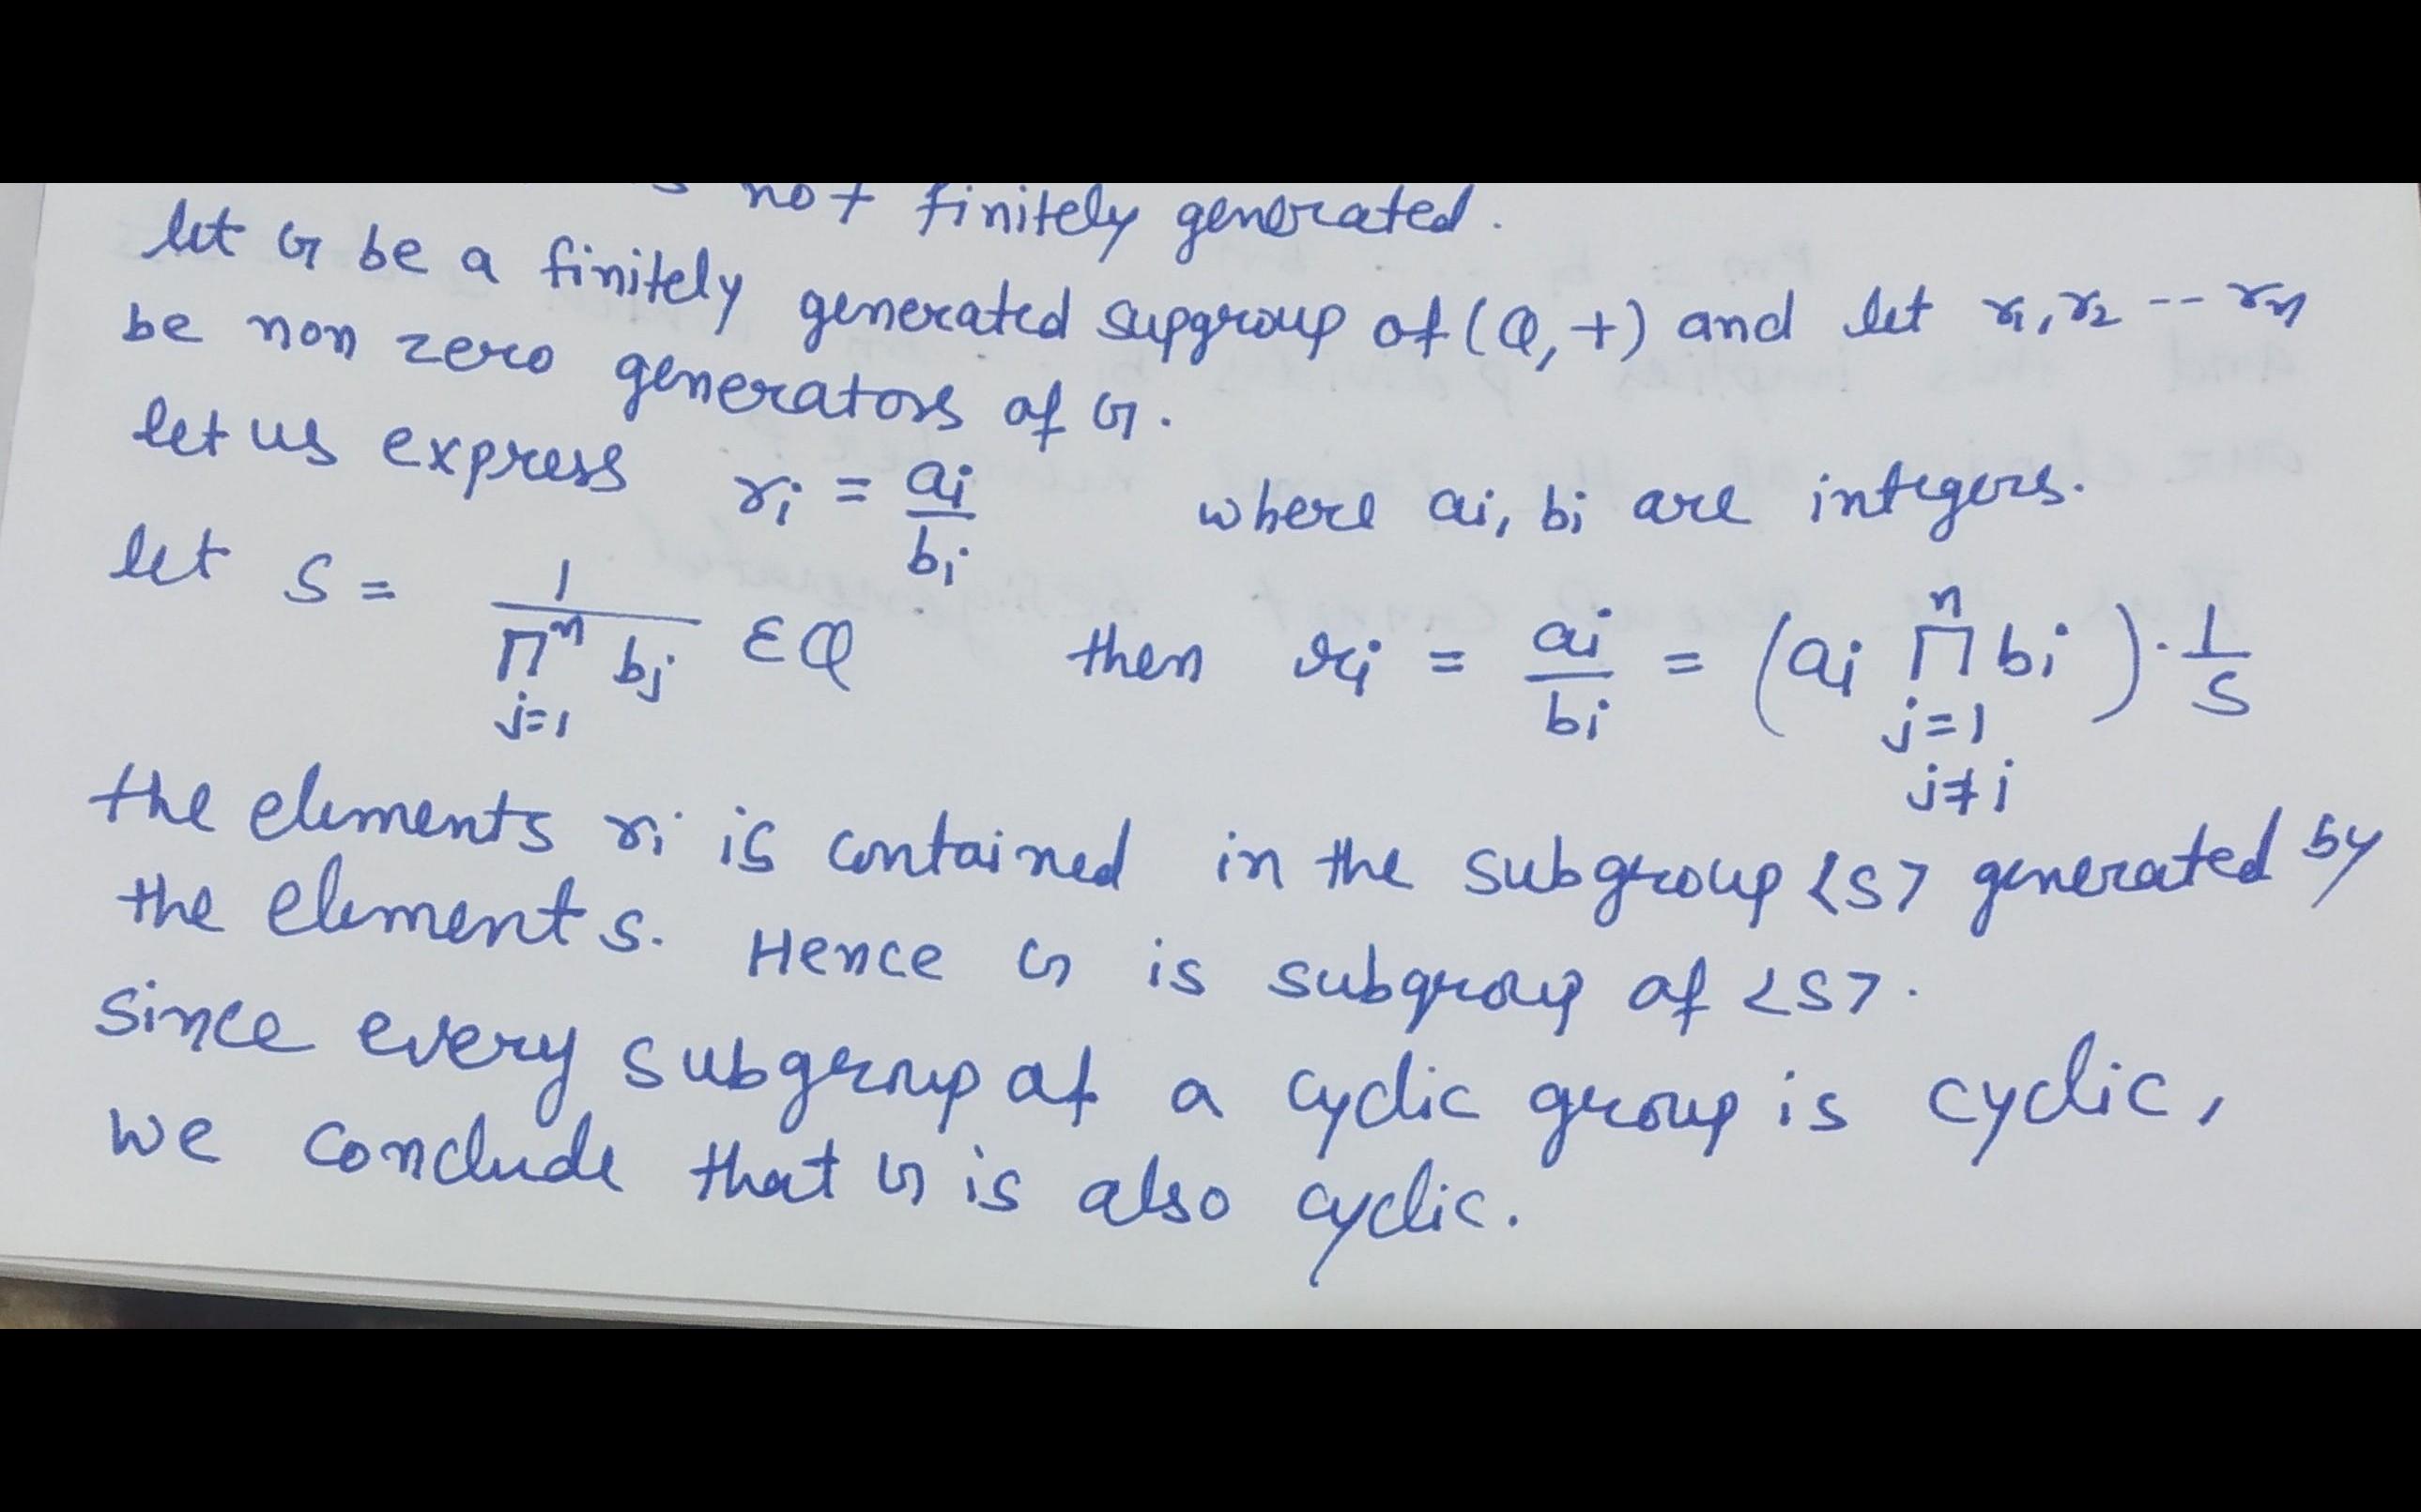 not finitely generated.
let G be a finitely generated supgroup of (Q, +) and let r1, r2 -- rn
be non zero generators of G.
let us express ri = ai/bi where ai, bi are integers.
let S = 1/∏ⁿj=1 bj ε Q then ri = ai/bi = (ai ∏ⁿj=1 j≠i bi) · 1/S
the elements ri is contained in the subgroup <S> generated by
the element s. Hence G is subgroup of <S>.
since every subgroup of a cyclic group is cyclic,
we conclude that G is also cyclic.